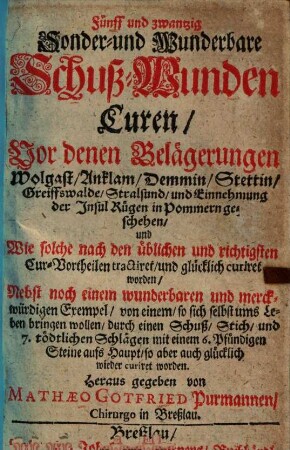 Fünff und zwantzig
Sonder-und Wunderbare
Schuß-Wunden
Curen/
Vor denen Belägerungen
Wolgast/Anklam/Demmin/Stettin/
Greiffswalde/Stralsund/und Einnehmung
der Insul Rügen in Pommern ge-
schehen/
und
Wie solche nach den üblichen und richtigsten
Cur-Vortheilen tractiret/und glücklich curiret
worden/
Nebst noch einem wunderbaren und merck-
würdigen Exempel/ von einem/ so sich selbst ums Le-
ben bringen wollen/ durch einen Schuß/ Stich/ und
7. tödtlichen Schlägen mit einem 6. Pfündigen
Steine aufs Haupt/so aber auch glücklich
wieder curiret worden.
Heraus gegeben von
MATHÆO GOTFRIED Purmannen/
Chirurgo in Breßlau.
Breßlau/